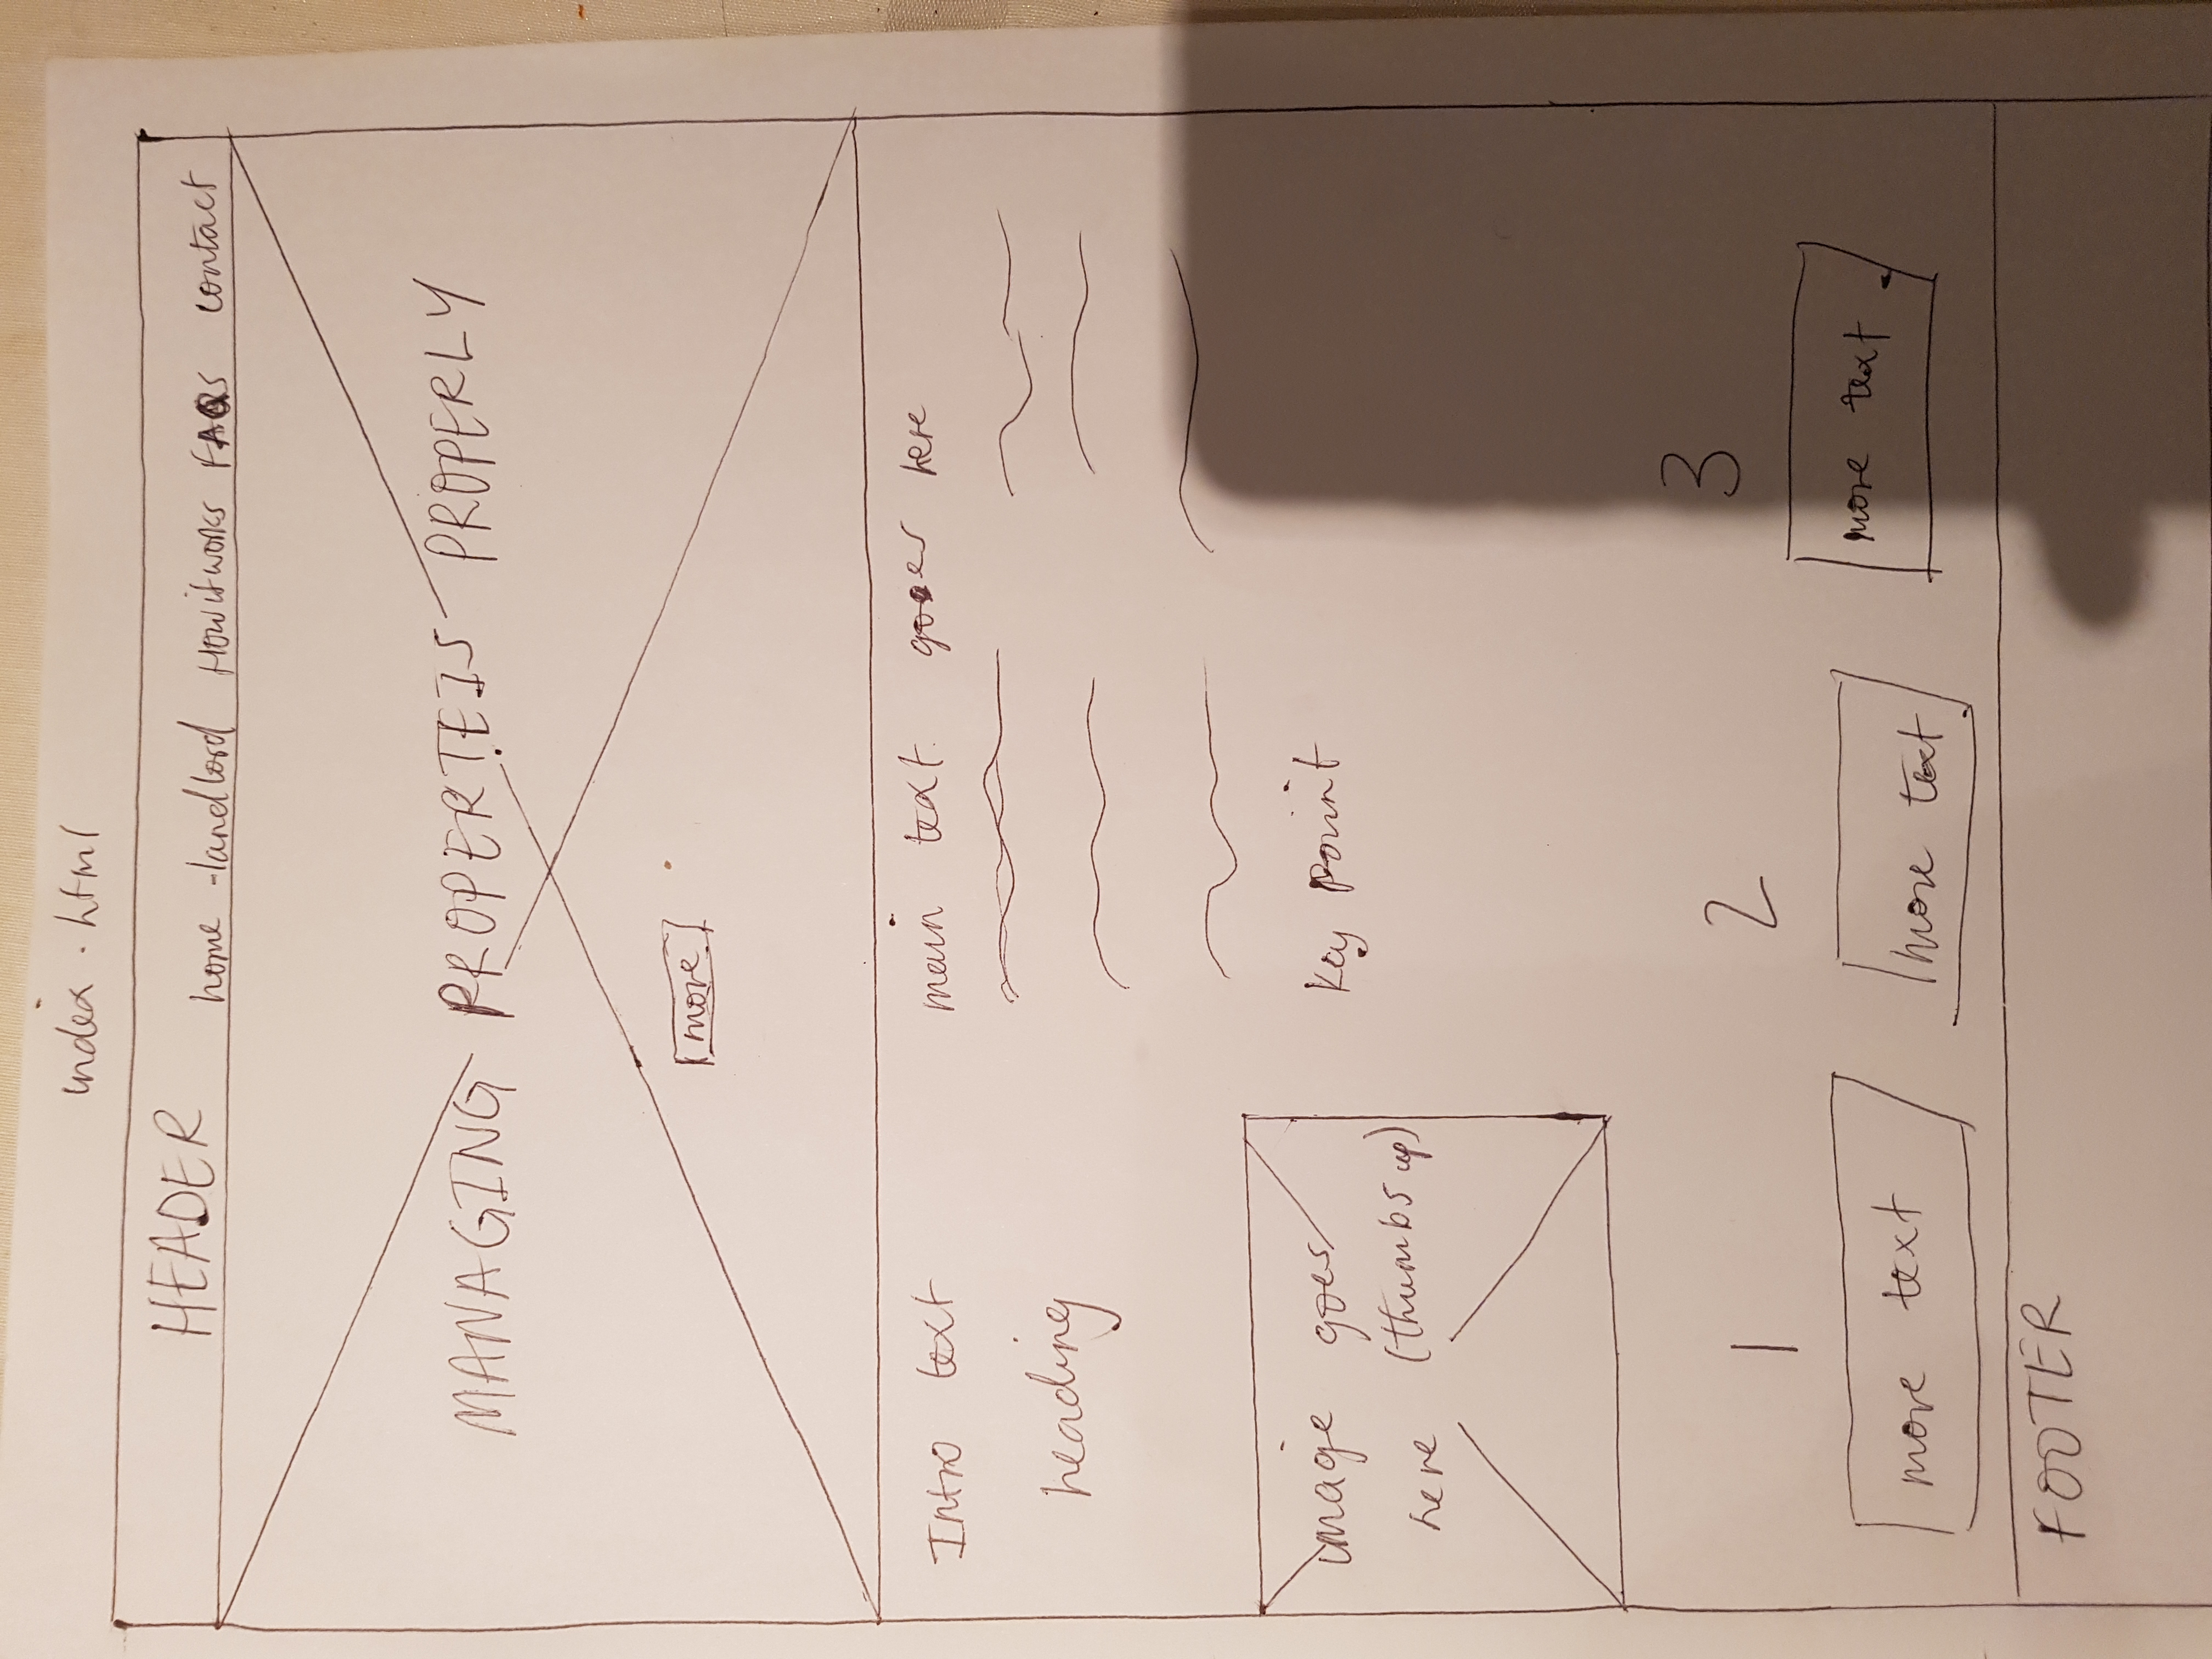 index.html
HEADER
home -landlord Howitworks FAQS contact
MANAGING PROPERTEIS PROPERLY
more
Intro text
heading
main text goes here
image goes
here (thumbs up)
Key point
1
2
3
more text
more text
more text
FOOTER